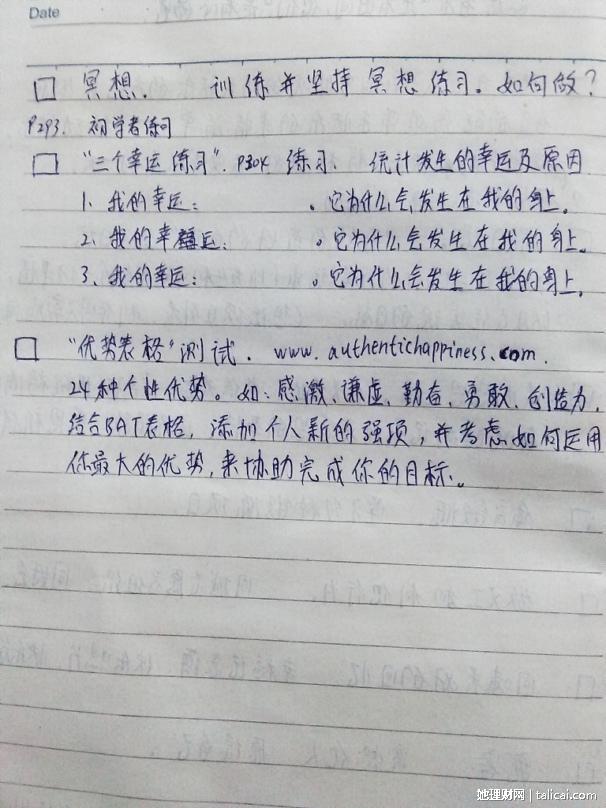 Date
□ 冥想. 训练并坚持冥想练习。如何做？
P293. 初学者练习
□ "三个幸运练习". P304 练习. 统计发生的幸运及原因
1. 我的幸运: 。它为什么会发生在我的身上。
2. 我的幸运: 。它为什么会发生在我的身上。
3. 我的幸运: 。它为什么会发生在我的身上。
□ "优势表格"测试. www.authentichappiness.com.
24种个性优势。如: 感激、谦虚、勤奋、勇敢、创造力,
结合BAT表格, 添加个人新的强项, 并考虑如何运用
你最大的优势, 来协助完成你的目标。
她理财网 | talicai.com